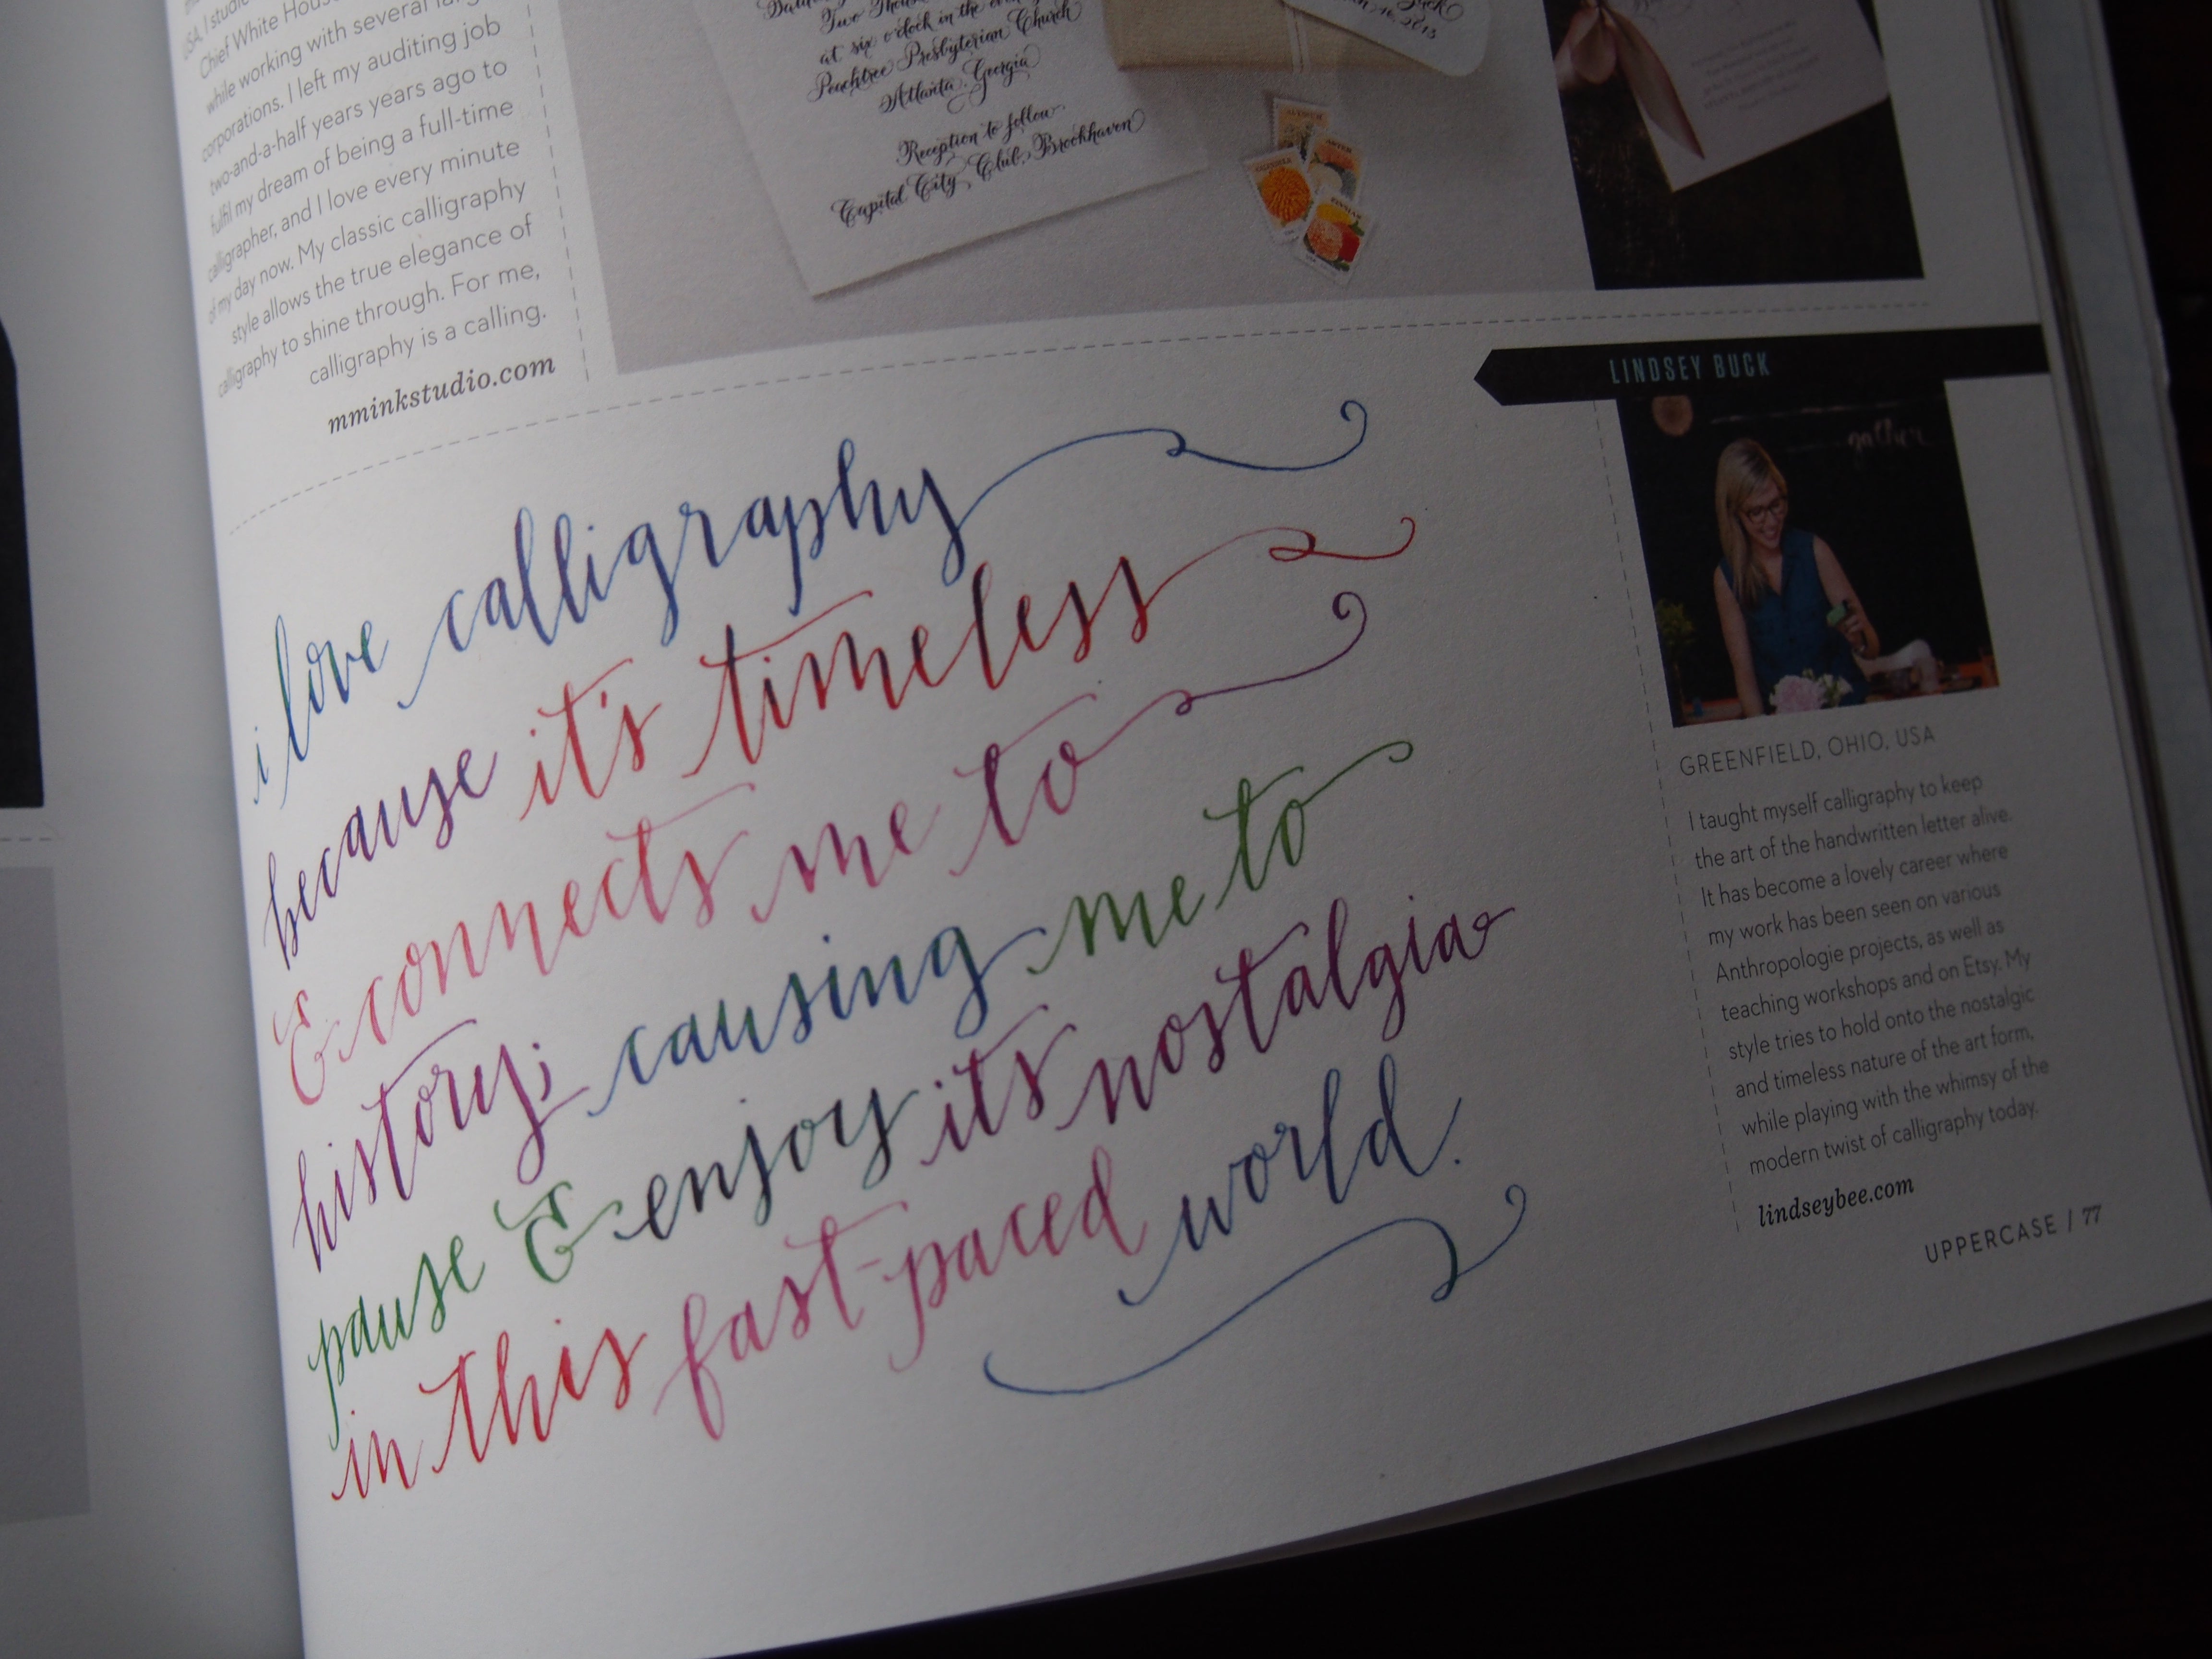 USA, I studie
Chief White Hous
while working with several
corporations. I left my auditing job
two-and-a-half years years ago to
fulfil my dream of being a full-time
calligrapher, and I love every minute
of my day now. My classic calligraphy
style allows the true elegance of
calligraphy to shine through. For me,
calligraphy is a calling.
mminkstudio.com
Two Thous
at six o'clock in the
Peachtree Presbyterian Church
Atlanta, Georgia
Reception to follow
Capital City Club, Brookhaven
2013
i love calligraphy
because it's timeless
& connects me to
history; causing me to
pause & enjoy it's nostalgia
in this fast-paced world.
LINDSEY BUCK
gather
GREENFIELD, OHIO, USA
I taught myself calligraphy to keep
the art of the handwritten letter alive.
It has become a lovely career where
my work has been seen on various
Anthropologie projects, as well as
teaching workshops and on Etsy. My
style tries to hold onto the nostalgic
and timeless nature of the art form,
while playing with the whimsy of the
modern twist of calligraphy today.
lindseybee.com
UPPERCASE / 77